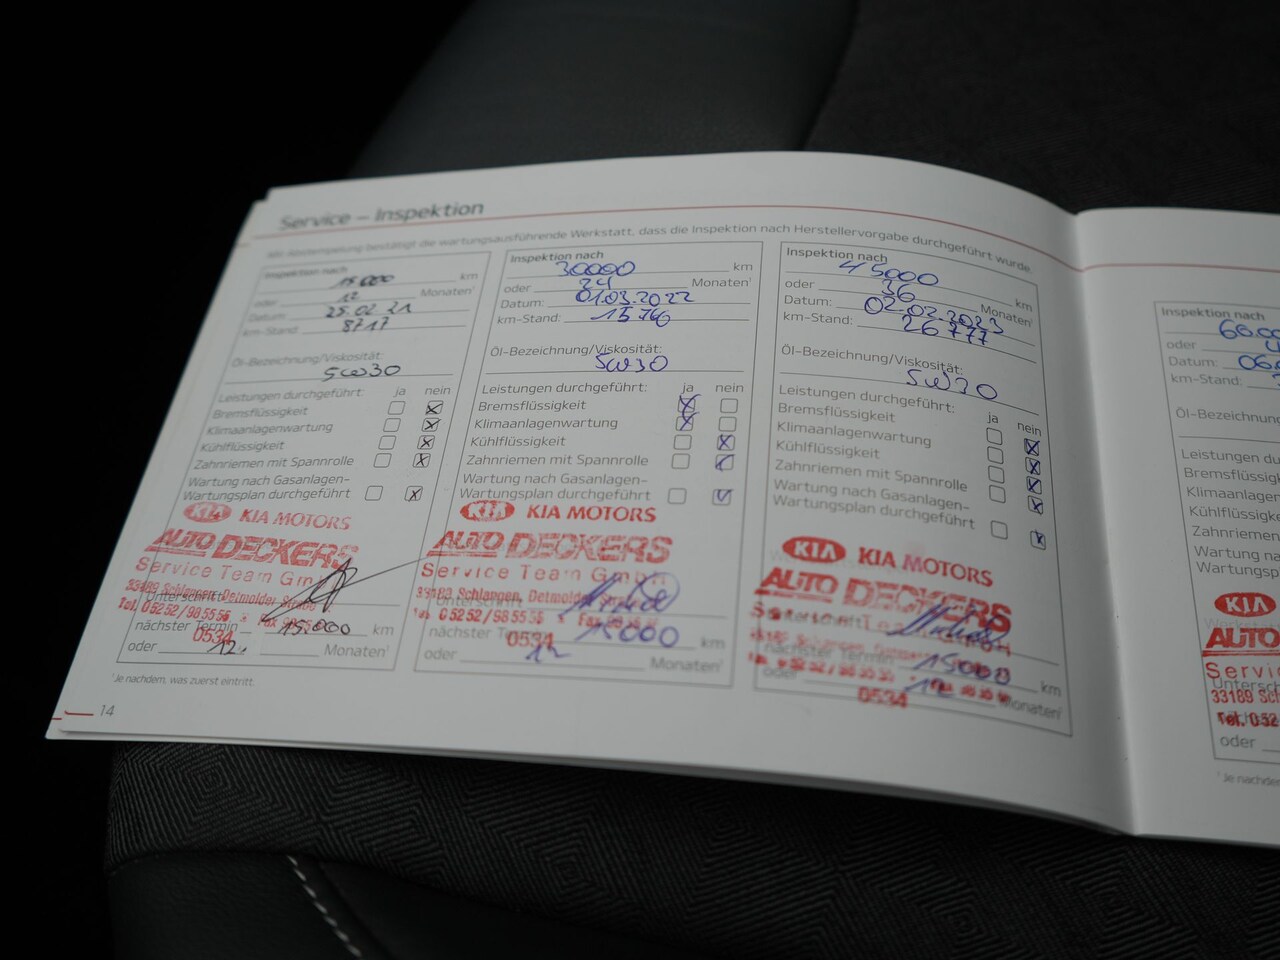 Service – Inspektion
Mit Abstempelung bestätigt die wartungsausführende Werkstatt, dass die Inspektion nach Herstellervorgabe durchgeführt wurde.
Inspektion nach
15 000 km
oder 12 Monaten¹
Datum: 25.02.21
km-Stand: 8717
Öl-Bezeichnung/Viskosität:
5W30
Leistungen durchgeführt: ja nein
Bremsflüssigkeit
Klimaanlagenwartung
Kühlflüssigkeit
Zahnriemen mit Spannrolle
Wartung nach Gasanlagen-
Wartungsplan durchgeführt
KIA KIA MOTORS
AUTO DECKERS
Service Team GmbH
33189 Schlangen, Detmolder Strasse
Unterschrift
Tel. 05252/985556
nächster Termin 15.000 km
0534
oder 12. Monaten¹
¹Je nachdem, was zuerst eintritt.
14
Inspektion nach
30000 km
oder 24 Monaten¹
Datum: 01.03.2022
km-Stand:
Öl-Bezeichnung/Viskosität:
5W30
Leistungen durchgeführt: ja nein
Bremsflüssigkeit
Klimaanlagenwartung
Kühlflüssigkeit
Zahnriemen mit Spannrolle
Wartung nach Gasanlagen-
Wartungsplan durchgeführt
KIA KIA MOTORS
AUTO DECKERS
Service Team GmbH
33189 Schlangen, Detmolder Strasse
Unterschrift
05252/985556 Fax
nächster Termin 15000 km
0534
oder 12 Monaten¹
Inspektion nach
45000 km
oder 36 Monaten¹
Datum: 02.02.2023
km-Stand: 26777
Öl-Bezeichnung/Viskosität:
5W30
Leistungen durchgeführt: ja nein
Bremsflüssigkeit
Klimaanlagenwartung
Kühlflüssigkeit
Zahnriemen mit Spannrolle
Wartung nach Gasanlagen-
Wartungsplan durchgeführt
KIA KIA MOTORS
AUTO DECKERS
Service Team GmbH
Unterschrift
nächster Termin 15000 km
oder 12 Monaten¹
0534
Inspektion nach
oder
Datum:
km-Stand:
Öl-Bezeichnung
Leistungen
Bremsflüssigkeit
Klimaanlagen
Kühlflüssigkeit
Zahnriemen
Wartung na
Wartungsplan
KIA
AUTO
Servic
Unterschrif
33189 Sch
Tel. 052
oder
¹Je nachde